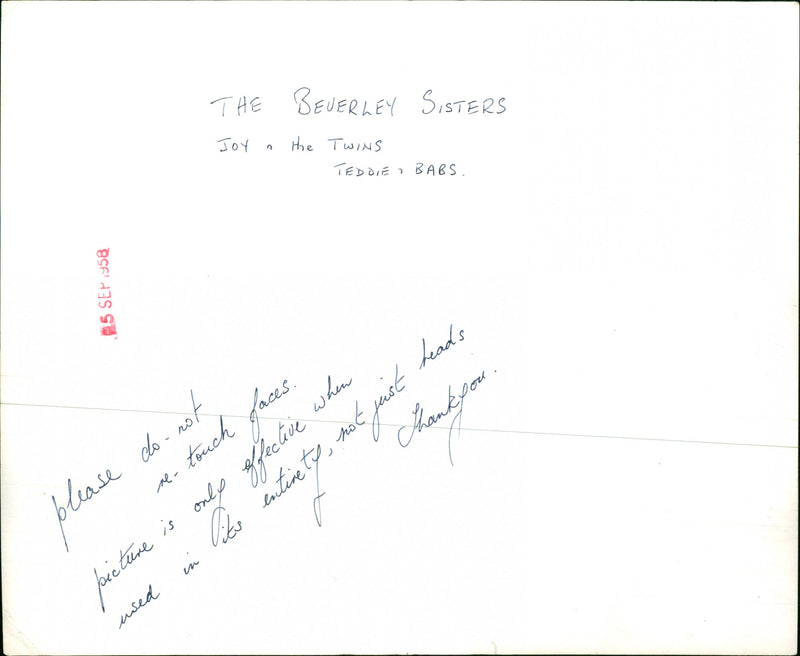 THE BEVERLEY SISTERS
JOY & the TWINS
TEDDIE & BABS.
5 SEP 1958
please do-not
re-touch faces.
picture is only effective when
used in its entirety, not just heads
Thankyou.